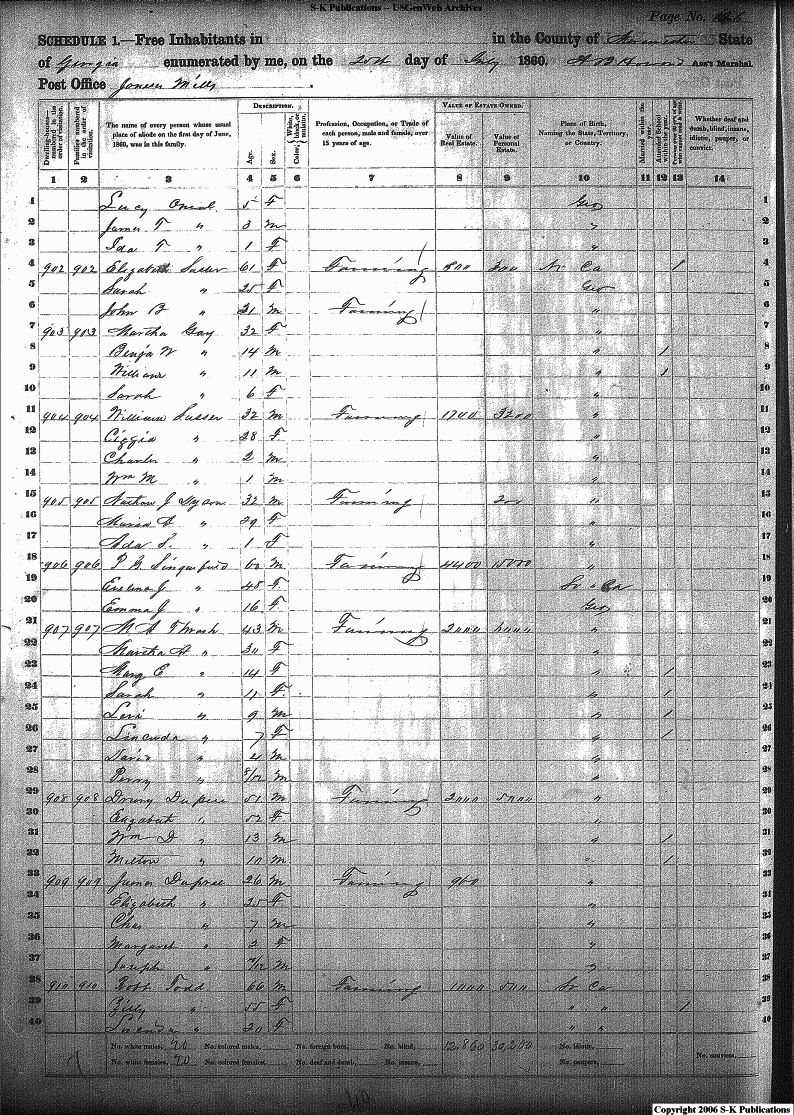 S-K Publications – USGenWeb Archives
Page No.
SCHEDULE 1.—Free Inhabitants in in the County of State
of Georgia enumerated by me, on the 20th day of July 1860. Ass't Marshal.
Post Office Jones Mills
Dwelling-houses—numbered in the order of visitation.
Families numbered in the order of visitation.
The name of every person whose usual place of abode on the first day of June, 1860, was in this family.
DESCRIPTION.
Age.
Sex.
Color, White, black, or mulatto.
Profession, Occupation, or Trade of each person, male and female, over 15 years of age.
VALUE OF ESTATE OWNED.
Value of Real Estate.
Value of Personal Estate.
Place of Birth, Naming the State, Territory, or Country.
Married within the year.
Attended School within the year.
Whether deaf and dumb, blind, insane, idiotic, pauper, or convict.
1 2 3 4 5 6 7 8 9 10 11 12 13 14
1 Lucy 5 F Geo 1
2 James T " 3 m " 2
3 Ida T " 1 F " 3
4 902 902 Elizabeth 61 F Farming 800 300 No Ca / 4
5 Sarah " 25 F Geo 5
6 John B " 31 m Farming " 6
7 903 903 Martha Gay 32 F " 7
8 Benja W " 14 m " / 8
9 William " 11 m " / 9
10 Sarah " 6 F " 10
11 904 904 William 32 m Farming 1700 3200 " 11
12 " 28 F " 12
13 Charles " 2 m " 13
14 Wm M " 1 m " 14
15 905 905 Nathan J Dyson 32 m Farming 200 " 15
16 " 29 F " 16
17 Ada S. " 1 F " 17
18 906 906 60 m Farming 4400 15000 " 18
19 J " 48 F So Ca 19
20 Emma J " 16 F Geo 20
21 907 907 43 m Farming 2000 " 21
22 Martha A " 30 F " 22
23 Mary E " 14 F " / 23
24 Sarah " 11 F " / 24
25 Levi " 9 m " / 25
26 " 7 F " / 26
27 David " 4 m " 27
28 Perry " 8/12 m " 28
29 908 908 Drury Dupree 51 m Farming 2000 5000 " 29
30 Elizabeth " 52 F " 30
31 Wm D " 13 m " / 31
32 Milton " 10 m " / 32
33 909 909 James Dupree 26 m Farming 960 " 33
34 Elizabeth " 25 F " 34
35 Chas " 7 m " 35
36 Margaret " 2 F " 36
37 Joseph " 7/12 m " 37
38 910 910 Robt Todd 66 m Farming 1000 500 So Ca 38
39 " 55 F " " / 39
40 Lucinda " 20 F " " 40
No. white males, 20 No. colored males, No. foreign born, No. blind, 12,860 30,200 No. idiotic,
No. white females, 20 No. colored females, No. deaf and dumb, No. insane, No. paupers, No. convicts,
Copyright 2006 S-K Publications